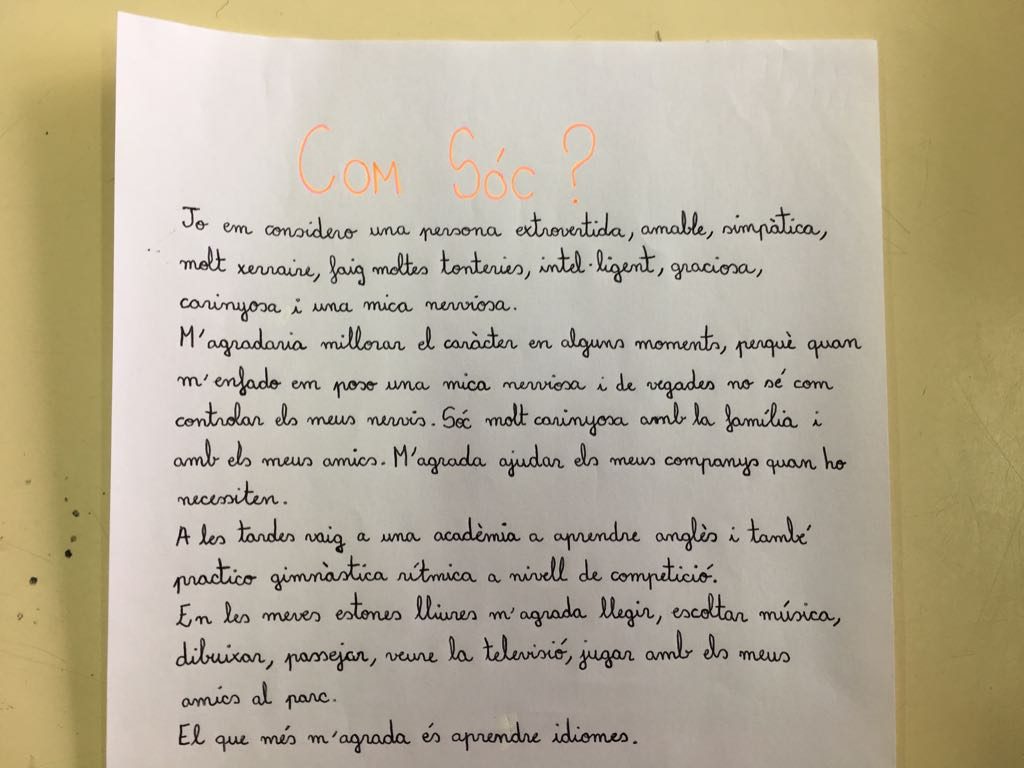 Com Sóc?
Jo em considero una persona extrovertida, amable, simpàtica,
molt xerraire, faig moltes tonteries, intel·ligent, graciosa,
carinyosa i una mica nerviosa.
M'agradaria millorar el caràcter en alguns moments, perquè quan
m'enfado em poso una mica nerviosa i de vegades no sé com
controlar els meus nervis. Sóc molt carinyosa amb la família i
amb els meus amics. M'agrada ajudar els meus companys quan ho
necessiten.
A les tardes vaig a una acadèmia a aprendre anglès i també
practico gimnàstica rítmica a nivell de competició.
En les meves estones lliures m'agrada llegir, escoltar música,
dibuixar, passejar, veure la televisió, jugar amb els meus
amics al parc.
El que més m'agrada és aprendre idiomes.